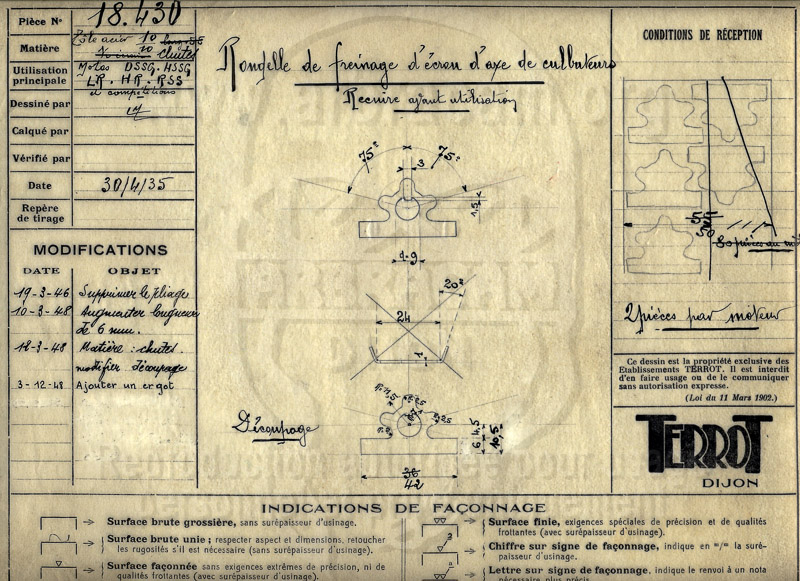 Pièce N° 18.430
Matière Tôle acier 10
10 chutes
Utilisation principale Motos DSSG, HSSG
LR, HR, RSS
et compétitions
Dessiné par
Calqué par
Vérifié par
Date 30/4/35
Repère de tirage
MODIFICATIONS
DATE OBJET
19-3-46 Supprimer le pliage
10-3-48 Augmenter longueur
de 6 mm.
12-3-48 Matière : chutes
modifier découpage
3-12-48 Ajouter un ergot
Rondelle de freinage d'écrou d'axe de culbuteurs
Recuire avant utilisation
75° 75°
3
1.5
19
20°
24
1
Découpage
6 4,5
10,5
38
42
CONDITIONS DE RÉCEPTION
55
50
2 pièces par moteur
Ce dessin est la propriété exclusive des
Etablissements TERROT. Il est interdit
d'en faire usage ou de le communiquer
sans autorisation expresse.
(Loi du 11 Mars 1902.)
TERROT
DIJON
INDICATIONS DE FAÇONNAGE
Surface brute grossière, sans surépaisseur d'usinage.
Surface brute unie ; respecter aspect et dimensions, retoucher
les rugosités s'il est nécessaire (sans surépaisseur d'usinage).
Surface façonnée sans exigences extrêmes de précision, ni de
qualités frottantes (avec surépaisseur d'usinage).
Surface finie, exigences spéciales de précision et de qualités
frottantes (avec surépaisseur d'usinage).
Chiffre sur signe de façonnage, indique en "/" la suré-
paisseur d'usinage.
Lettre sur signe de façonnage, indique le renvoi à un nota
nécessaire plus précis.